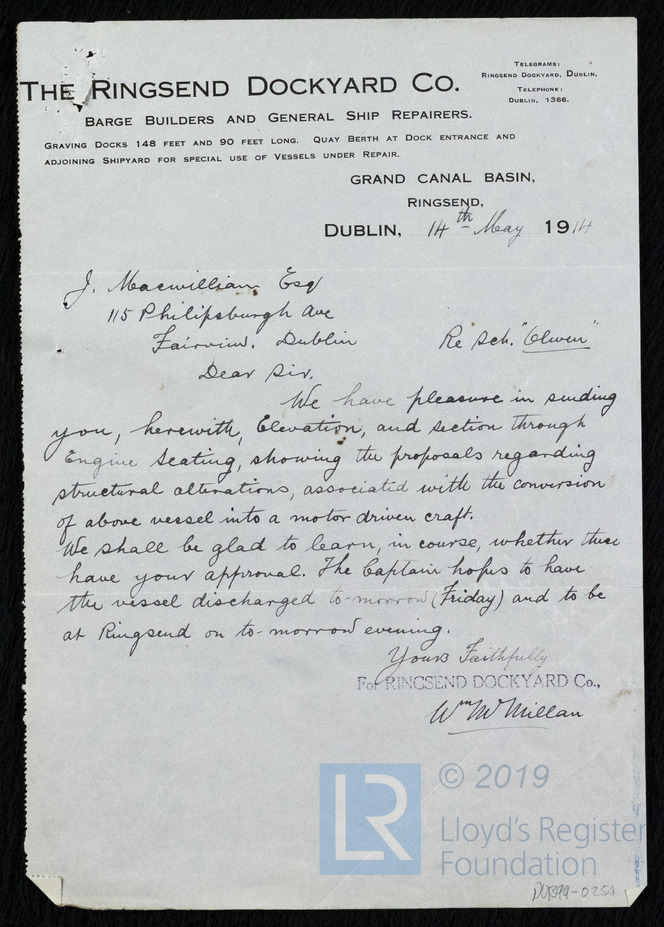 THE RINGSEND DOCKYARD CO.
TELEGRAMS:
RINGSEND DOCKYARD, DUBLIN.
TELEPHONE:
DUBLIN, 1366.
BARGE BUILDERS AND GENERAL SHIP REPAIRERS.
GRAVING DOCKS 148 FEET AND 90 FEET LONG. QUAY BERTH AT DOCK ENTRANCE AND
ADJOINING SHIPYARD FOR SPECIAL USE OF VESSELS UNDER REPAIR.
GRAND CANAL BASIN,
RINGSEND,
DUBLIN, 14th May 1914
J. Macwilliam Esq
115 Philipsburgh Ave
Fairview. Dublin
Re Sch. "Olwen"
Dear Sir.
We have pleasure in sending
you, herewith, Elevation, and section through
Engine Seating, showing the proposals regarding
structural alterations, associated with the conversion
of above vessel into a motor driven craft.
We shall be glad to learn, in course, whether these
have your approval. The Captain hopes to have
the vessel discharged to-morrow (Friday) and to be
at Ringsend on to-morrow evening.
Yours Faithfully
For RINGSEND DOCKYARD Co.,
Wm McMillan
LR
© 2019
Lloyd's Register
Foundation
DUB99-0254